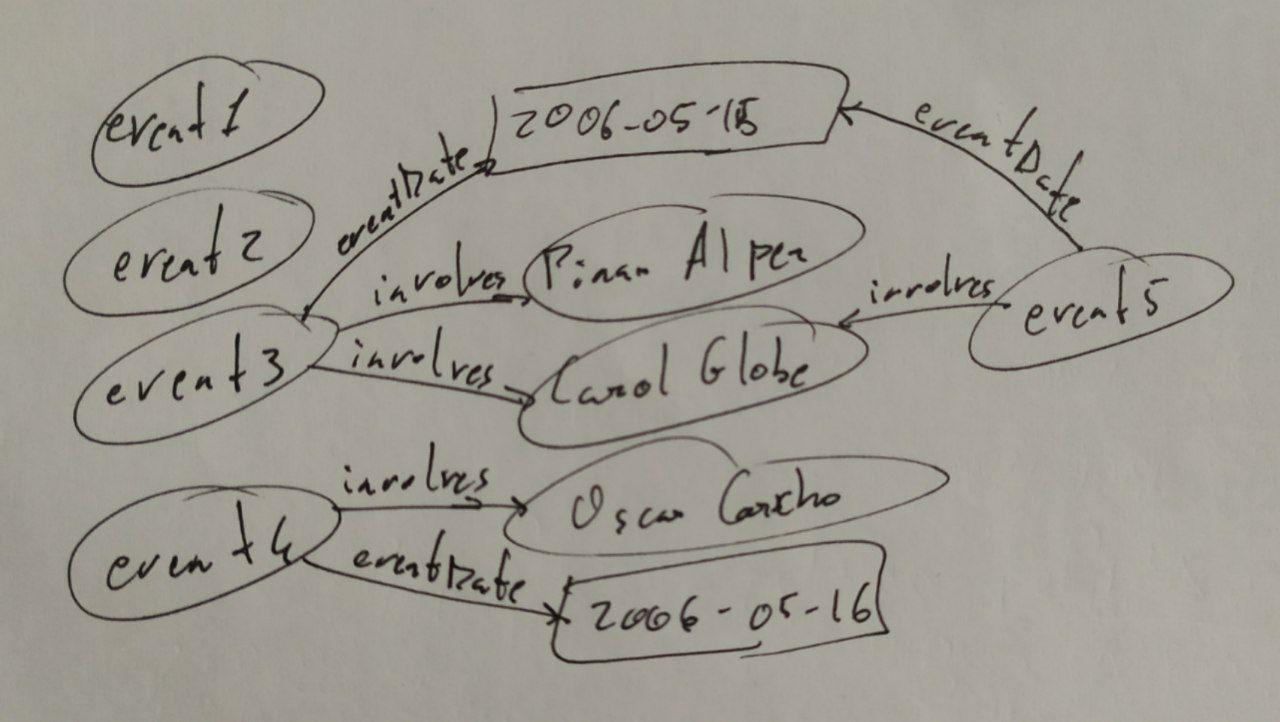 event1
2006-05-15
eventDate
eventDate
event2
involves
Pinan Alpen
involves
event5
event3
involves
Carol Globe
involves
Oscar
event4
eventDate
2006-05-16